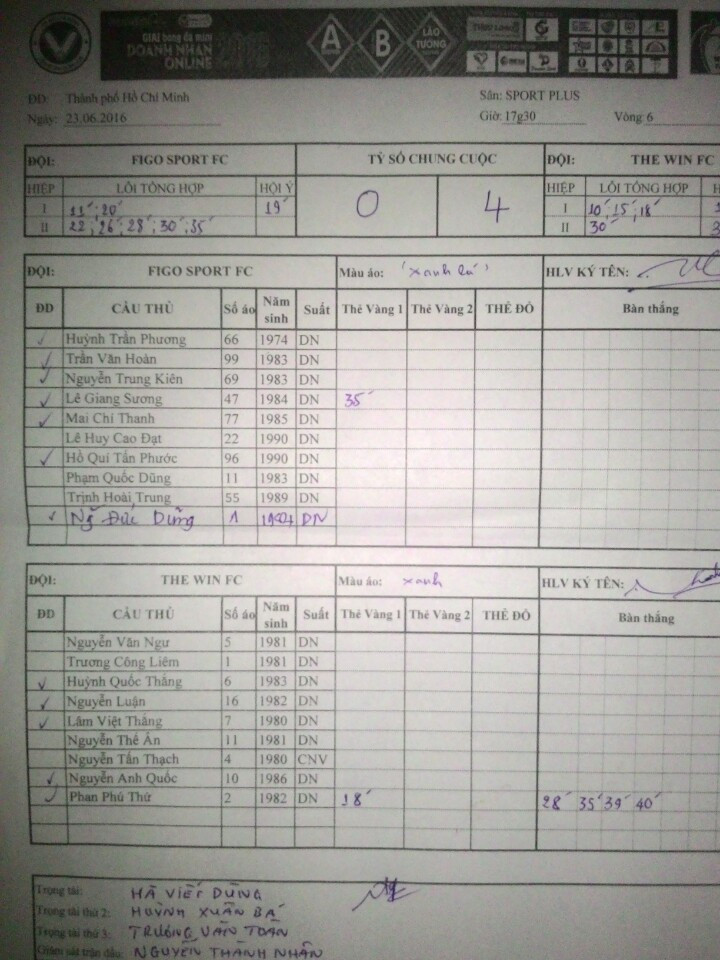 GIẢI bóng đá mini
DOANH NHÂN
ONLINE 2016
A B LÃO TƯỚNG
ĐĐ: Thành phố Hồ Chí Minh Sân: SPORT PLUS
Ngày: 23.06.2016 Giờ: 17g30 Vòng: 6
ĐỘI: FIGO SPORT FC TỶ SỐ CHUNG CUỘC ĐỘI: THE WIN FC
HIỆP LỖI TỔNG HỢP HỘI Ý 0 4 HIỆP LỖI TỔNG HỢP
I 11' ; 20' 19' I 10' ; 15' ; 18'
II 22' ; 26' ; 28' ; 30' ; 35' II 30'
ĐỘI: FIGO SPORT FC Màu áo: 'xanh lá' HLV KÝ TÊN:
ĐD CẦU THỦ Số áo Năm sinh Suất Thẻ Vàng 1 Thẻ Vàng 2 THẺ ĐỎ Bàn thắng
✓ Huỳnh Trần Phương 66 1974 DN
✓ Trần Văn Hoàn 99 1983 DN
✓ Nguyễn Trung Kiên 69 1983 DN
✓ Lê Giang Sương 47 1984 DN 35'
✓ Mai Chí Thanh 77 1985 DN
Lê Huy Cao Đạt 22 1990 DN
✓ Hồ Quí Tấn Phước 96 1990 DN
Phạm Quốc Dũng 11 1983 DN
Trịnh Hoài Trung 55 1989 DN
✓ Ng Đức Dũng 1 DN
ĐỘI: THE WIN FC Màu áo: xanh HLV KÝ TÊN:
ĐD CẦU THỦ Số áo Năm sinh Suất Thẻ Vàng 1 Thẻ Vàng 2 THẺ ĐỎ Bàn thắng
Nguyễn Văn Ngư 5 1981 DN
Trương Công Liêm 1 1981 DN
✓ Huỳnh Quốc Thắng 6 1983 DN
✓ Nguyễn Luận 16 1982 DN
✓ Lâm Việt Thắng 7 1980 DN
Nguyễn Thế Ân 11 1981 DN
Nguyễn Tấn Thạch 4 1980 CNV
✓ Nguyễn Anh Quốc 10 1986 DN
✓ Phan Phú Thứ 2 1982 DN 18' 28' 35' 39' 40'
Trọng tài: HÀ VIẾT DŨNG
Trọng tài thứ 2: HUỲNH XUÂN BÁ
Trọng tài thứ 3: TRƯƠNG VĂN TOÀN
Giám sát trận đấu: NGUYỄN THÀNH NHÂN